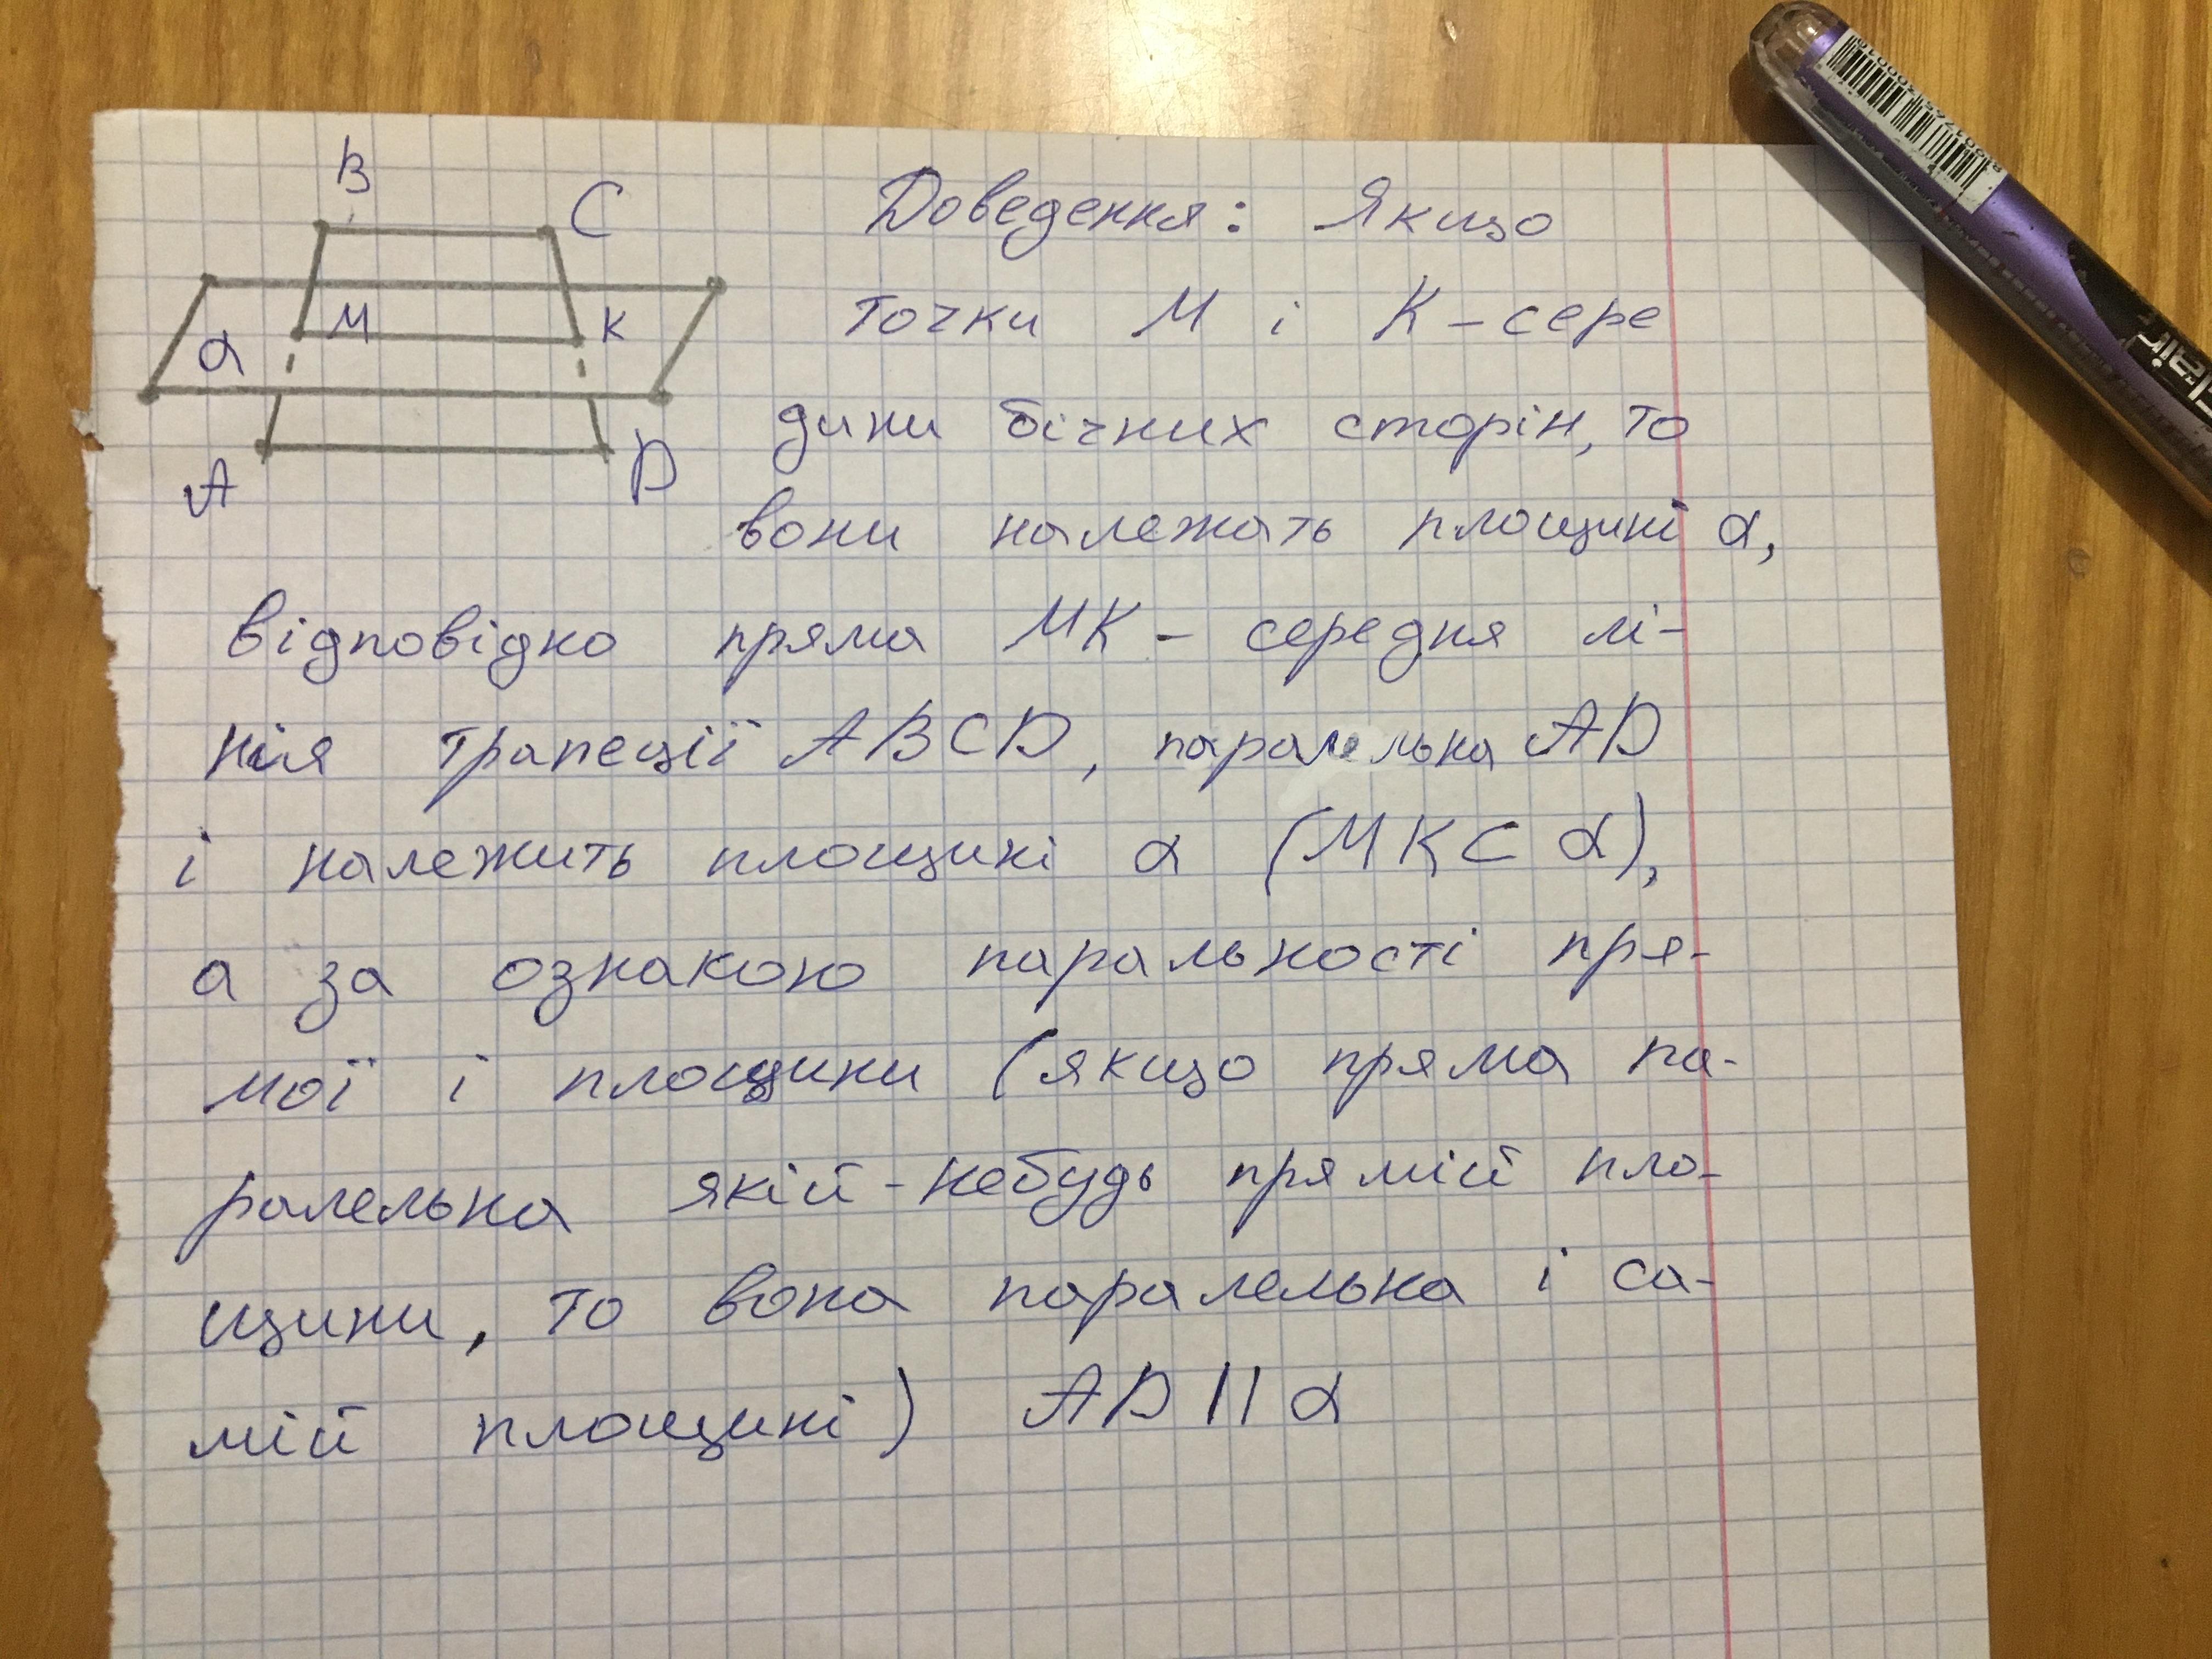 B
C
M
K
α
A
D
Доведення: Якщо
точки M і K – сере
дини бічних сторін, то
вони належать площині α,
відповідно пряма MK – середня лі-
нія трапеції ABCD, паралельна AD
і належить площині α (MK⊂α),
а за ознакою паральності пря-
мої і площини (якщо пряма па-
ралельна якій-небудь прямій пло-
щини, то вона паралельна і са-
мій площині) AD || α